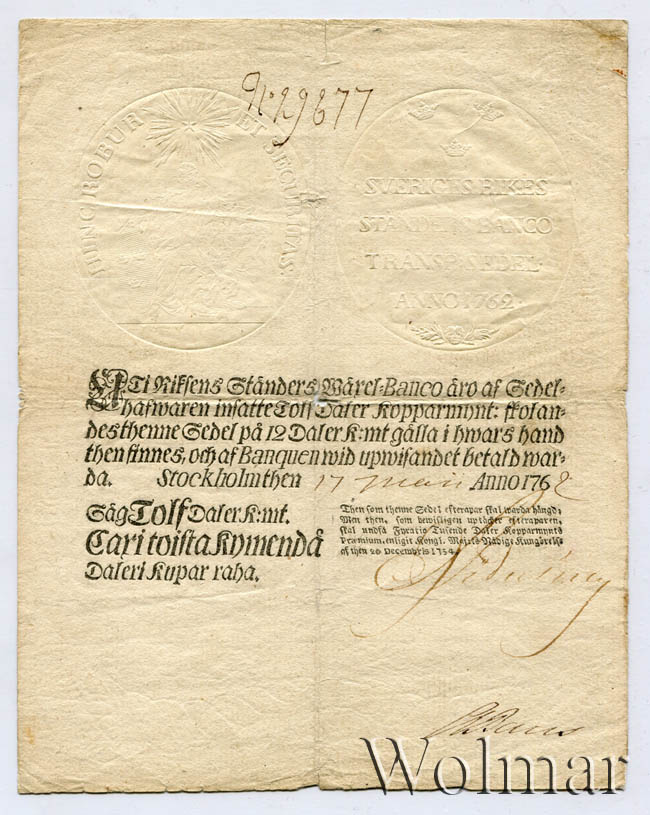 No 29677
HINC ROBUR ET SECURITAS
SVERIGES RIKES
STÄNDERS BANCO
TRANSP. SEDEL
ANNO 1762
ATi Riksens Ständers Wäxel-Banco äro af Sedel-
hafwaren insatte Tolf Daler Kopparmynt: skolan-
des thenne Sedel på 12 Daler K:mt gälla i hwars hand
then finnes, och af Banquen wid upwisandet betald war-
da. Stockholm then 17 Maii Anno 1762
Säg Tolf Daler K:mt.
Caxi toista Kymendä
Daleri Kupar raha.
Then som thenne Sedel efterapar skal warda hängd;
Men then, som bewisligen uptäcker efteraparen,
skal undfå Fyratio Tusende Daler Kopparmynts
Præmium, enligit Kongl. Maj:ts Nådige Kungörelse
af then 20 Decembris 1754.
Wolmar